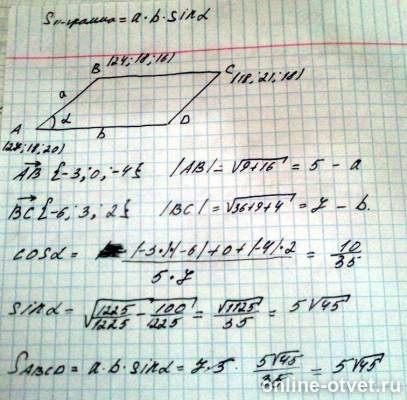 Sп-грамма = a·b·sinα
B (24;18;16)
C (18;21;18)
a
α
A b D
(27;18;20)
AB {-3;0;-4} |AB| = √9+16 = 5 - a
BC {-6;3;2} |BC| = √36+9+4 = 7 - b.
cosα = (-3·(-6)+0+(-4)·2)/(5·7) = 10/35
sinα = √(1225/1225 - 100/1225) = √1125/35 = 5√45
SABCD = a·b·sinα = 7·5· 5√45/35 = 5√45
online-otvet.ru